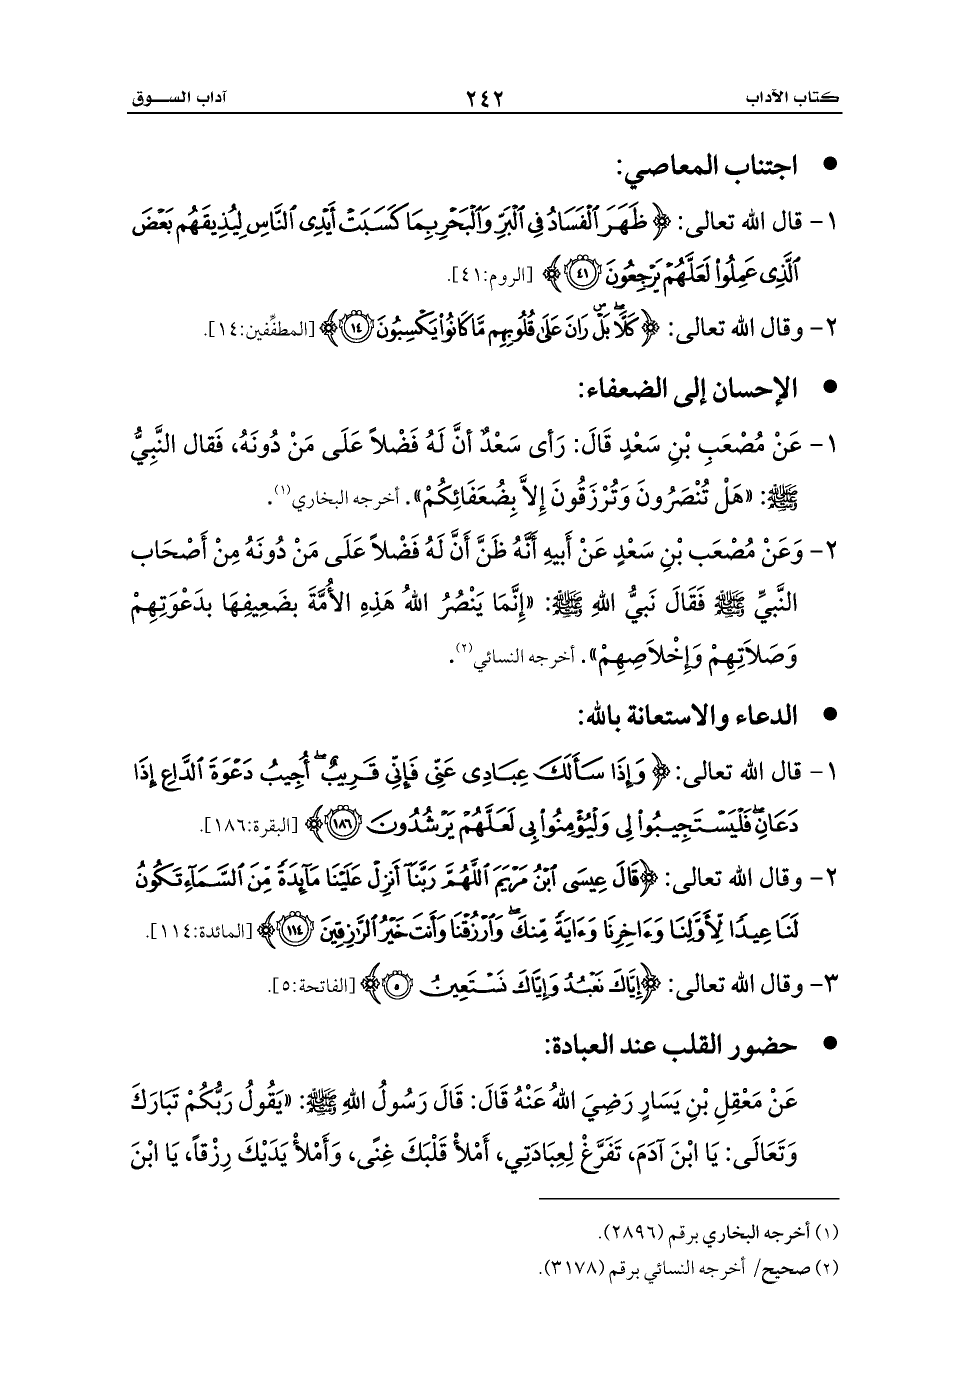 كتاب الآداب ٢٤٢ آداب الســـوق
● اجتناب المعاصي:
١- قال الله تعالى: ﴿ظَهَرَ ٱلْفَسَادُ فِي ٱلْبَرِّ وَٱلْبَحْرِ بِمَا كَسَبَتْ أَيْدِي ٱلنَّاسِ لِيُذِيقَهُم بَعْضَ
ٱلَّذِي عَمِلُوا۟ لَعَلَّهُمْ يَرْجِعُونَ ٤١﴾ [الروم:٤١].
٢- وقال الله تعالى: ﴿كَلَّا ۖ بَلْ ۜ رَانَ عَلَىٰ قُلُوبِهِم مَّا كَانُوا۟ يَكْسِبُونَ ١٤﴾ [المطفِّفين:١٤].
● الإحسان إلى الضعفاء:
١- عَنْ مُصْعَبِ بْنِ سَعْدٍ قَالَ: رَأى سَعْدٌ أنَّ لَهُ فَضْلاً عَلَى مَنْ دُونَهُ، فَقال النَّبِيُّ
ﷺ: «هَلْ تُنْصَرُونَ وَتُرْزَقُونَ إلاَّ بِضُعَفَائِكُمْ». أخرجه البخاري(١).
٢- وَعَنْ مُصْعَب بْنِ سَعْدٍ عَنْ أَبيهِ أَنَّهُ ظَنَّ أَنَّ لَهُ فَضْلاً عَلَى مَنْ دُونَهُ مِنْ أَصْحَاب
النَّبيِّ ﷺ فَقَالَ نَبيُّ اللهِ ﷺ: «إنَّمَا يَنْصُرُ اللهُ هَذِهِ الأُمَّةَ بضَعِيفِهَا بدَعْوَتِهِمْ
وَصَلاَتِهِمْ وَإخْلاَصِهِمْ». أخرجه النسائي(٢).
● الدعاء والاستعانة بالله:
١- قال الله تعالى: ﴿وَإِذَا سَأَلَكَ عِبَادِي عَنِّي فَإِنِّي قَرِيبٌ ۖ أُجِيبُ دَعْوَةَ ٱلدَّاعِ إِذَا
دَعَانِ ۖ فَلْيَسْتَجِيبُوا۟ لِي وَلْيُؤْمِنُوا۟ بِي لَعَلَّهُمْ يَرْشُدُونَ ١٨٦﴾ [البقرة:١٨٦].
٢- وقال الله تعالى: ﴿قَالَ عِيسَى ٱبْنُ مَرْيَمَ ٱللَّهُمَّ رَبَّنَآ أَنزِلْ عَلَيْنَا مَآئِدَةً مِّنَ ٱلسَّمَآءِ تَكُونُ
لَنَا عِيدًا لِّأَوَّلِنَا وَءَاخِرِنَا وَءَايَةً مِّنكَ ۖ وَٱرْزُقْنَا وَأَنتَ خَيْرُ ٱلرَّٰزِقِينَ ١١٤﴾ [المائدة:١١٤].
٣- وقال الله تعالى: ﴿إِيَّاكَ نَعْبُدُ وَإِيَّاكَ نَسْتَعِينُ ٥﴾ [الفاتحة:٥].
● حضور القلب عند العبادة:
عَنْ مَعْقِلِ بْنِ يَسَارٍ رَضِيَ اللهُ عَنْهُ قَالَ: قَالَ رَسُولُ اللهِ ﷺ: «يَقُولُ رَبُّكُمْ تَبَارَكَ
وَتَعَالَى: يَا ابْنَ آدَمَ، تَفَرَّغْ لِعِبَادَتِي، أَمْلأْ قَلْبَكَ غِنًى، وَأَمْلأْ يَدَيْكَ رِزْقاً، يَا ابْنَ
(١) أخرجه البخاري برقم (٢٨٩٦).
(٢) صحيح/ أخرجه النسائي برقم (٣١٧٨).